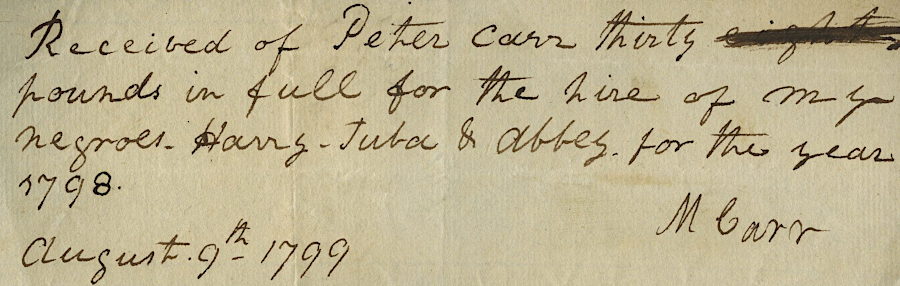 Received of Peter Carr thirty eight
pounds in full for the hire of my
negroes. Harry - Juba & Abbey. for the year
1798.
M Carr
August. 9th 1799